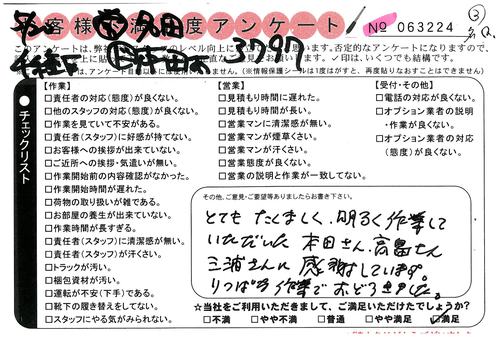 お客様満足度アンケート
№ 063224
③
3797
【作業】
□責任者の対応(態度)が良くない。
□他のスタッフの対応(態度)が良くない。
□作業を見ていて不安がある。
□責任者(スタッフ)に好感が持てない。
□お客様への挨拶が出来ていない。
□ご近所への挨拶・気遣いが無い。
□作業開始前の内容確認がなかった。
□作業開始時間が遅れた。
□荷物の取り扱いが雑である。
□お部屋の養生が出来ていない。
□作業時間が長すぎる。
□責任者(スタッフ)に清潔感が無い。
□責任者(スタッフ)が汗くさい。
□トラックが汚い。
□梱包資材が汚い。
□運転が不安(下手)である。
□靴下の履き替えをしてない。
□スタッフにやる気がみられない。
【営業】
□見積もり時間に遅れた。
□見積もり時間が長い。
□営業マンに清潔感が無い。
□営業マンが煙草くさい。
□営業マンが汗くさい。
□営業態度が良くない。
□営業の説明と作業が一致してない。
【受付・その他】
□電話の対応が良くない。
□オプション業者の説明
・作業が良くない。
□オプション業者の対応
(態度)が良くない。
チェックリスト
その他、ご意見・ご要望等ありましたらお書き下さい。
とても たくましく、明るく作業して
いただいた 本田さん、高畠さん
三浦さんに 感謝しています。
りっぱな作業で おどろきました。
☆当社をご利用いただきまして、ご満足いただけたでしょうか?
□不満 □やや不満 □普通 □やや満足 ☑満足